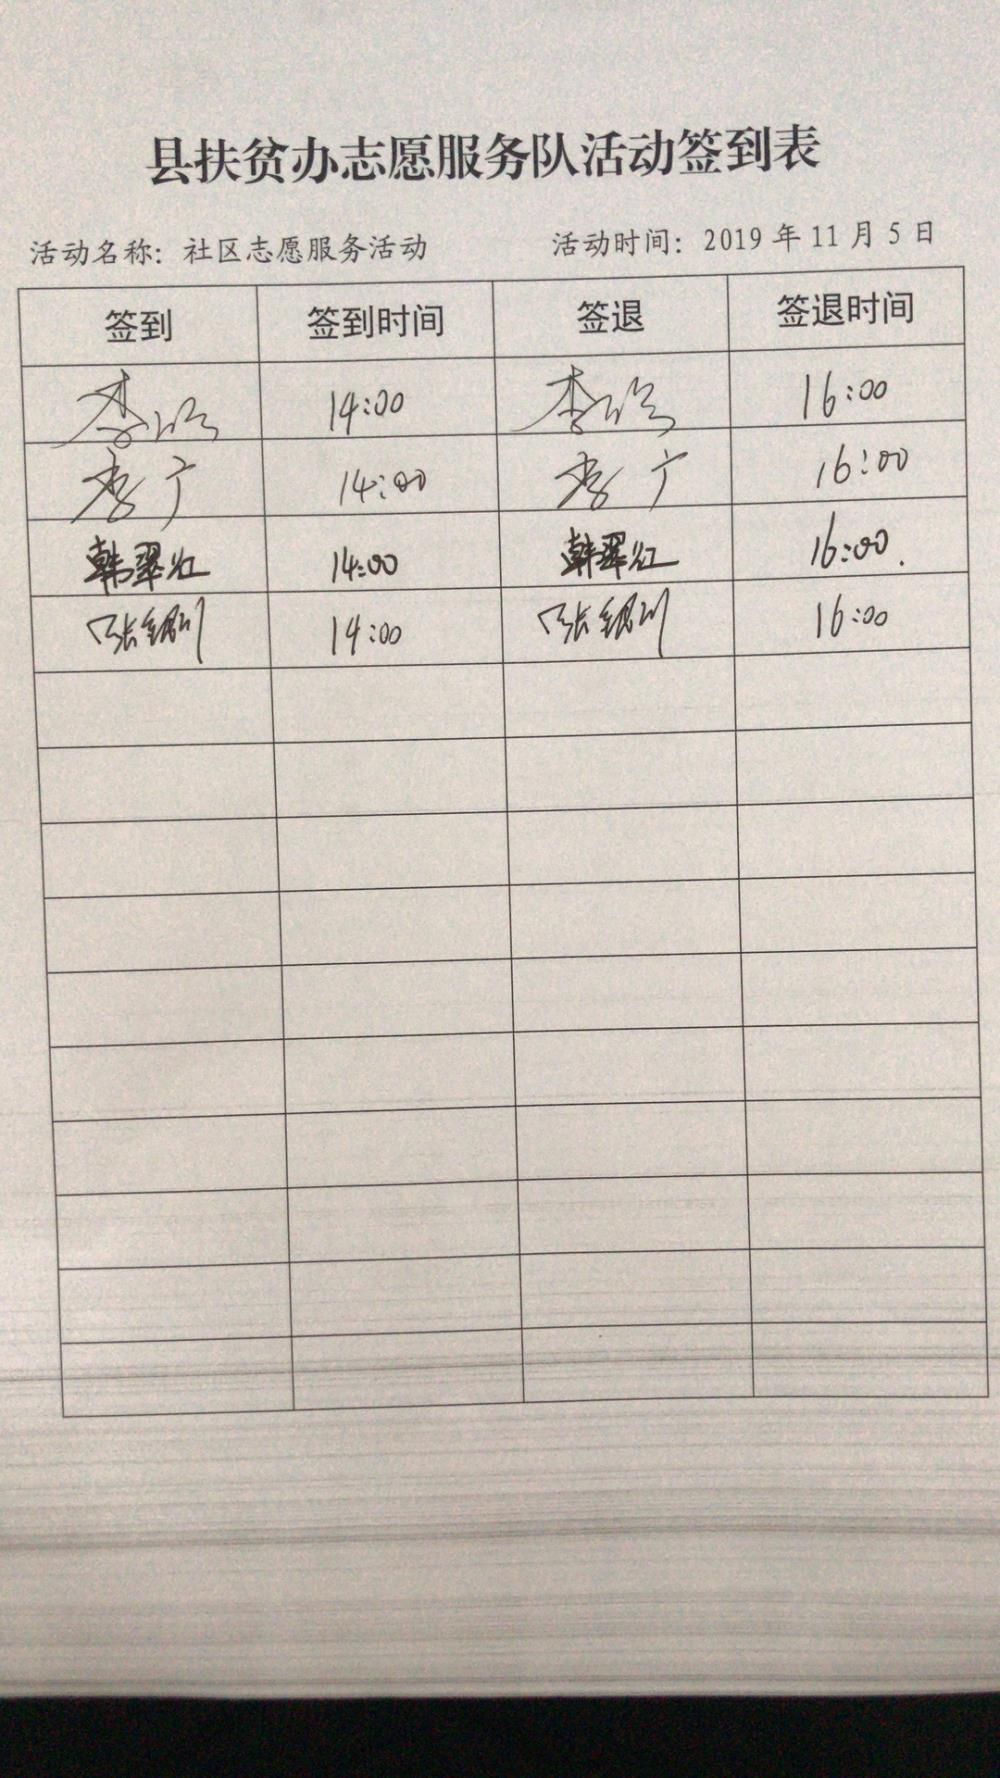 县扶贫办志愿服务队活动签到表
活动名称：社区志愿服务活动 活动时间：2019 年 11 月 5 日
签到 签到时间 签退 签退时间
李 14:00 李 16:00
李广 14:00 李广 16:00
韩翠红 14:00 韩翠红 16:00.
张银川 14:00 张银川 16:00